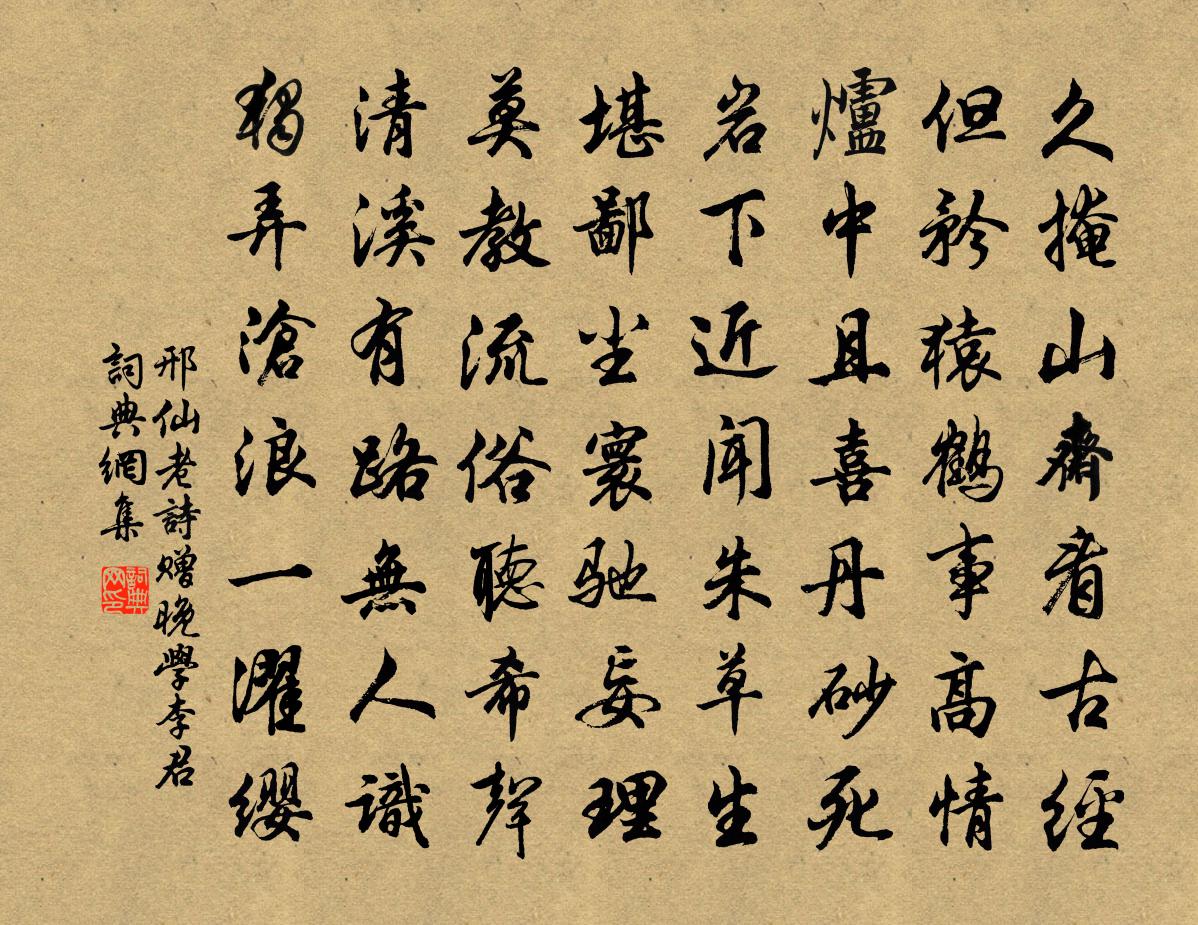 久掩山齋看古經
但矜猿鶴事高情
爐中且喜丹砂死
岩下近聞朱草生
堪鄙尘寰驰妄理
莫教流俗聽希聲
清溪有路無人識
獨弄滄浪一濯纓
邢仙老詩贈晚學李君
詞典網集
詞典网印